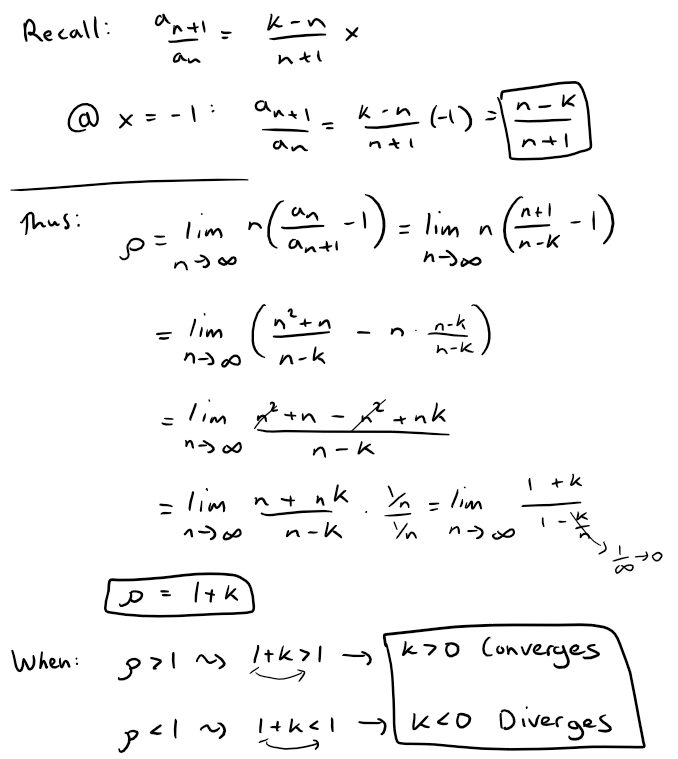 Recall: a_{n+1}/a_n = (k-n)/(n+1) x
@ x = -1: a_{n+1}/a_n = (k-n)/(n+1) (-1) = (n-k)/(n+1)
Thus: ρ = lim_{n→∞} n(a_n/a_{n+1} - 1) = lim_{n→∞} n((n+1)/(n-k) - 1)
= lim_{n→∞} ((n²+n)/(n-k) - n · (n-k)/(n-k))
= lim_{n→∞} (n²+n - n² + nk)/(n-k)
= lim_{n→∞} (n + nk)/(n-k) · (1/n)/(1/n) = lim_{n→∞} (1+k)/(1 - k/n) → 1/∞ → 0
ρ = 1+k
When: ρ > 1 ⇝ 1+k > 1 → k>0 Converges
ρ < 1 ⇝ 1+k < 1 → k<0 Diverges